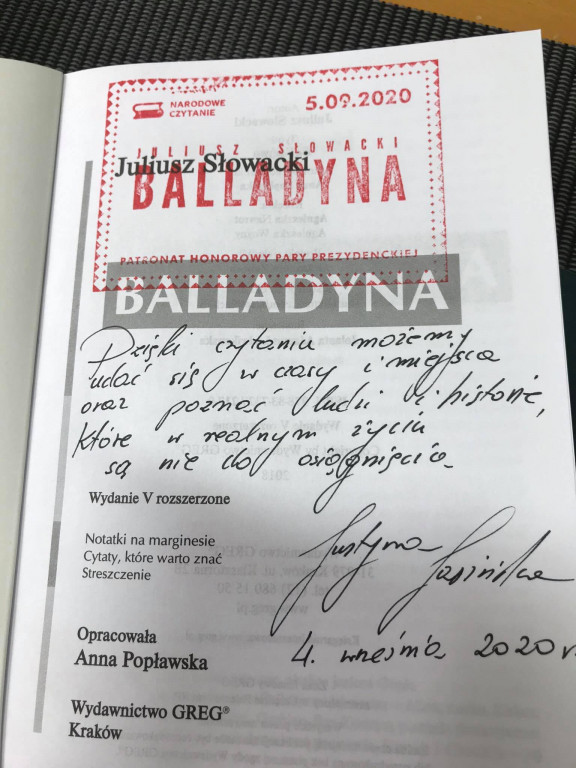 NARODOWE
CZYTANIE
5.09.2020
JULIUSZ SŁOWACKI
Juliusz Słowacki
BALLADYNA
PATRONAT HONOROWY PARY PREZYDENCKIEJ
BALLADYNA
Dzięki czytaniu możemy
udać się w czasy i miejsca
oraz poznać ludzi i historie,
które w realnym życiu
są nie do osiągnięcia.
Wydanie V rozszerzone
Notatki na marginesie
Cytaty, które warto znać
Streszczenie
Justyna
Opracowała
Anna Popławska
4. września 2020 r.
Wydawnictwo GREG®
Kraków